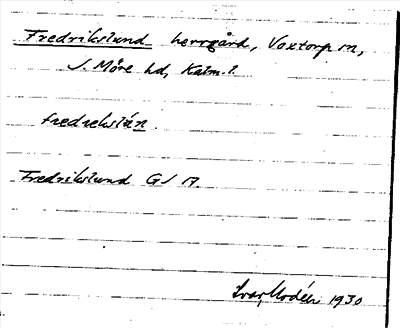 Fredrikslund herrgård, Voxtorp sn,
S. Möre hd, Kalm. l.
fredrekslán.
Fredrikslund GS 17.
Ivar Modéer 1930